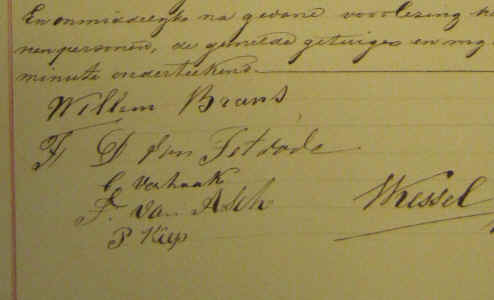 En onmiddelijk na gedane voorlezing he
nenpersonen, de gemelde getuigen en mij
minute onderteekend.
Willem Brans
F D van
C Verhaak
F. van Asch Wessel
P. Kiep